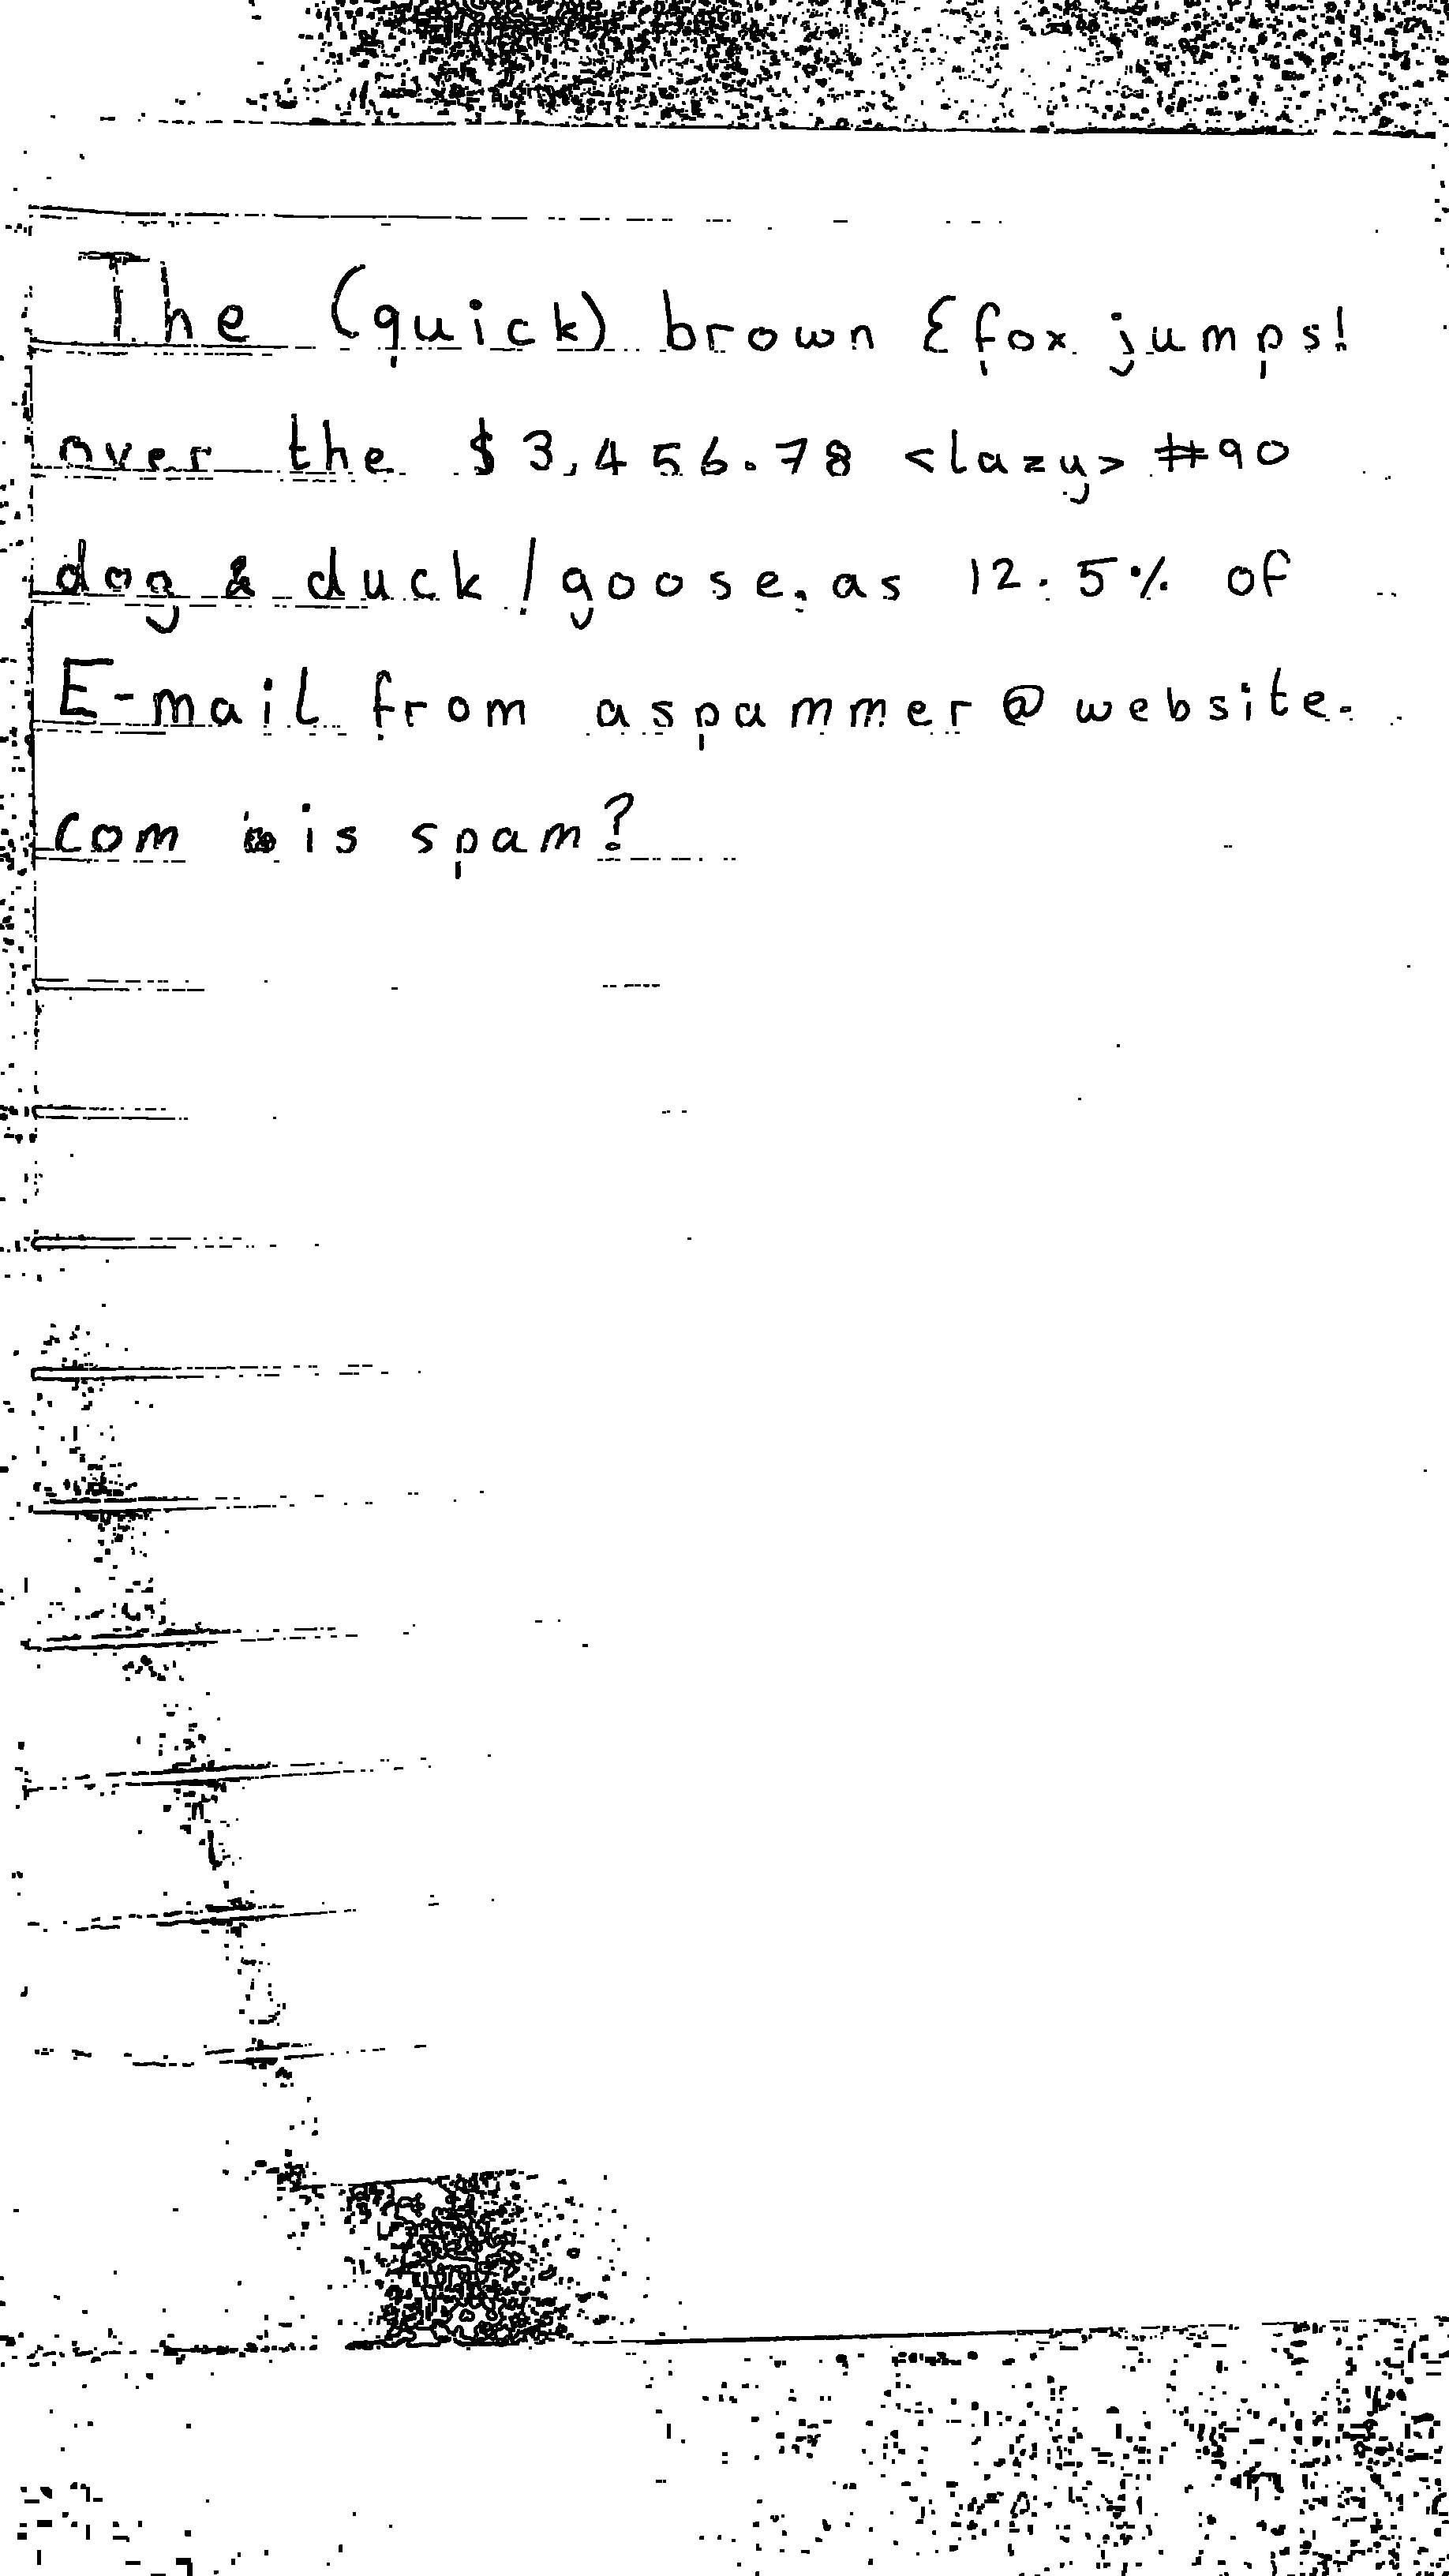 The (quick) brown {fox jumps!
over the $3,456.78 <lazy> #90
dog & duck/goose.as 12.5% of
E-mail from aspammer@website.
com is spam?